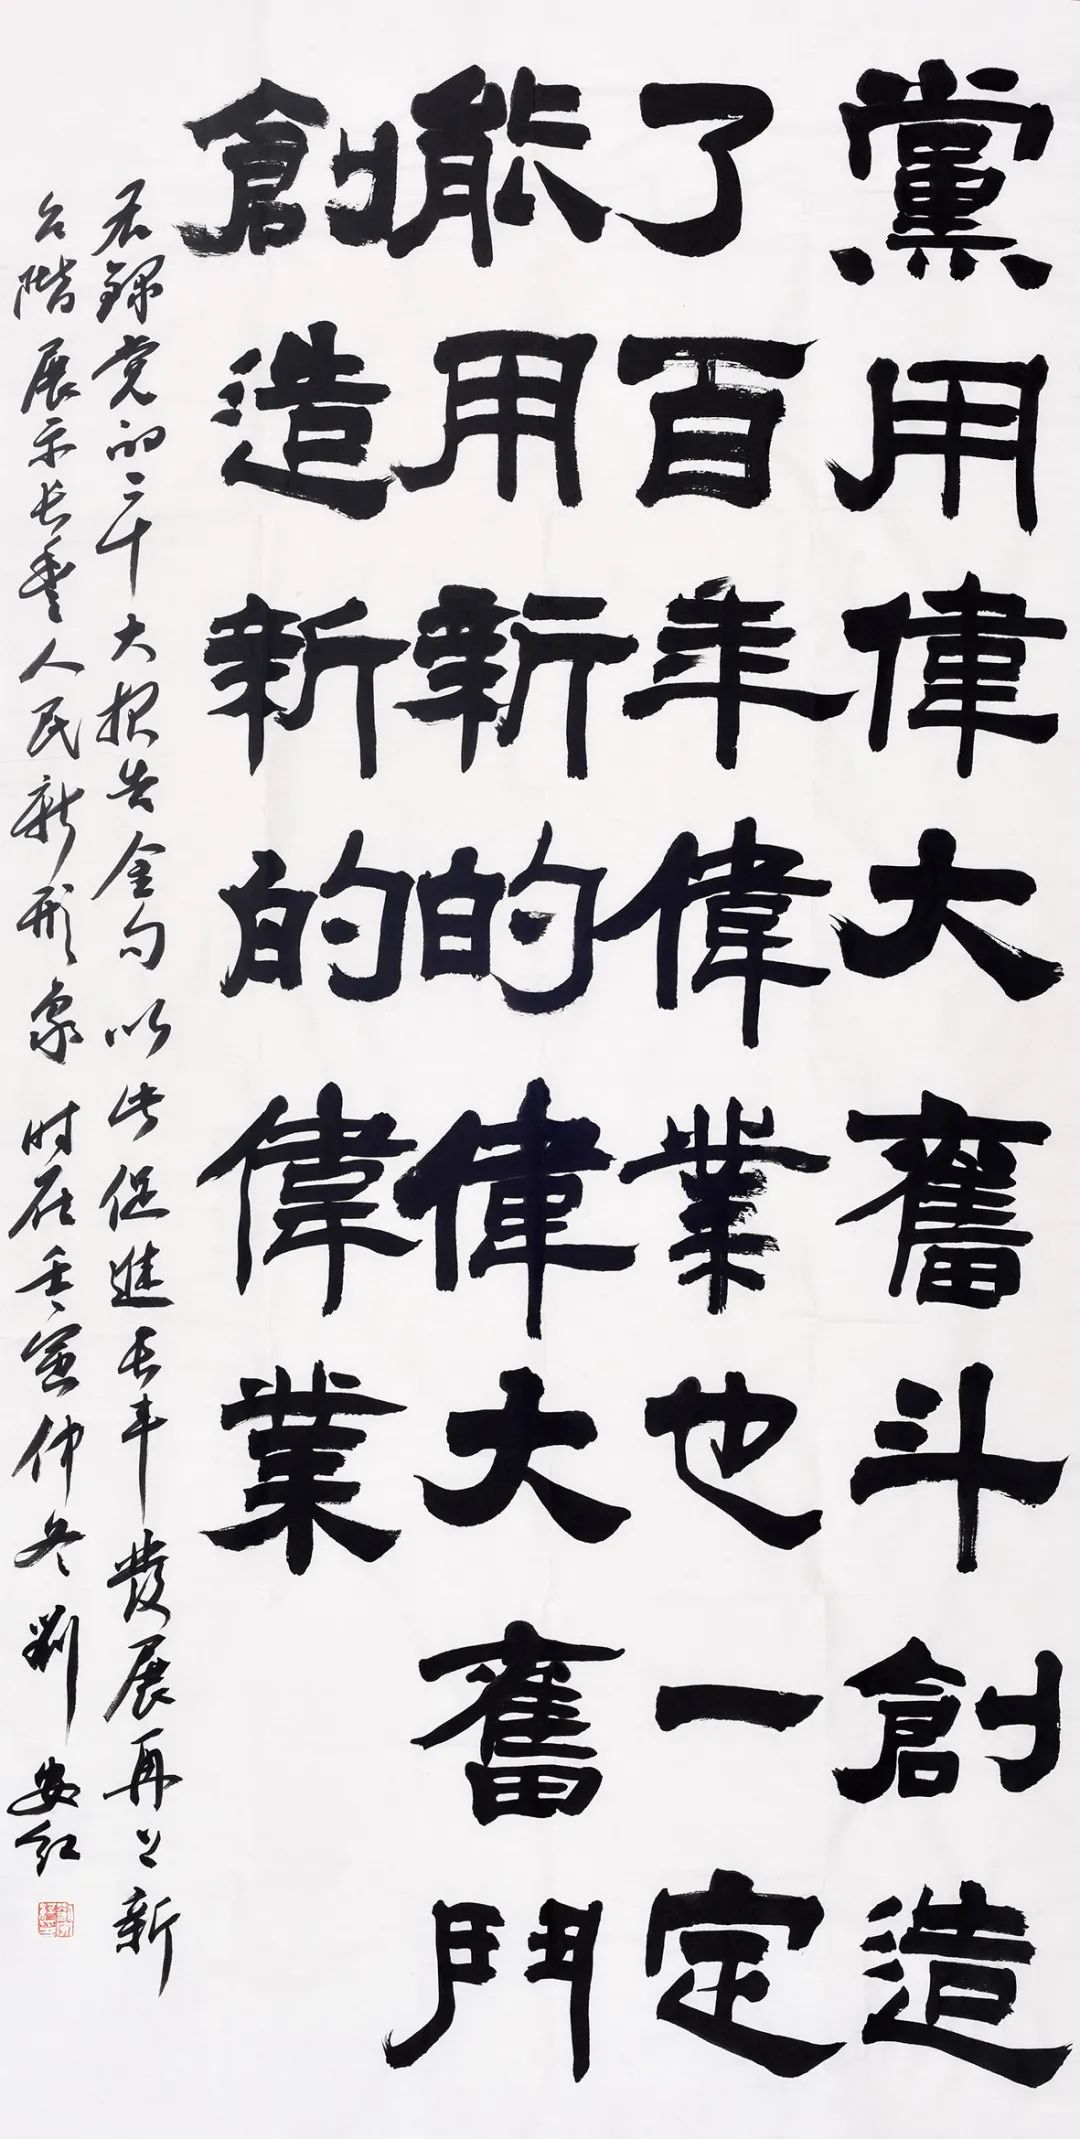 黨用偉大奮斗創造
了百年偉業也一定
能用新的偉大奮鬥
創造新的偉業
右錄党的二十大报告金句以此促進长丰發展再上新
台階展示长豐人民新形象时在壬寅仲冬劉安红